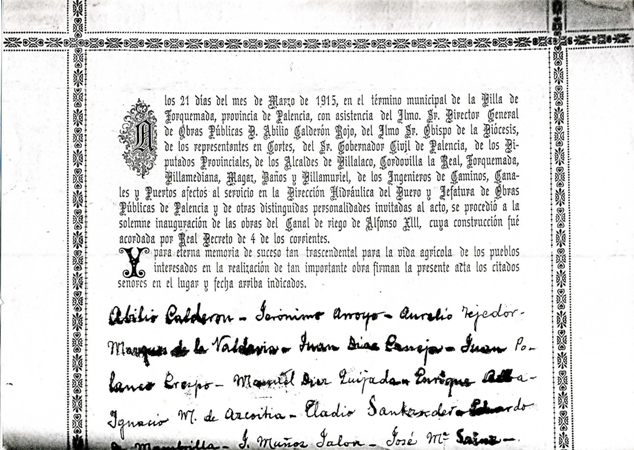 A los 21 días del mes de Marzo de 1915, en el término municipal de la Villa de
Torquemada, provincia de Palencia, con asistencia del Ilmo. Sr. Director General
de Obras Públicas D. Abilio Calderón Rojo, del Ilmo Sr. Obispo de la Diócesis,
de los representantes en Cortes, del Sr. Gobernador Civil de Palencia, de los Di-
putados Provinciales, de los Alcaldes de Villalaco, Cordovilla la Real, Torquemada,
Villamediana, Magaz, Baños y Villamuriel, de los Ingenieros de Caminos, Cana-
les y Puertos afectos al servicio en la Dirección Hidráulica del Duero y Jefatura de Obras
Públicas de Palencia y de otras distinguidas personalidades invitadas al acto, se procedió a la
solemne inauguración de las obras del Canal de riego de Alfonso XIII, cuya construcción fué
acordada por Real Decreto de 4 de los corrientes.
Y para eterna memoria de suceso tan trascendental para la vida agrícola de los pueblos
interesados en la realización de tan importante obra firman la presente acta los citados
señores en el lugar y fecha arriba indicados.
Abilio Calderon - Jerónimo Arroyo - Aurelio Tejedor -
Marques de la Valdavia - Juan Diaz Caneja - Juan Po-
lanco Crespo - Manuel Diez Quijada - Enrique Alba -
Ignacio M. de Azcoitia - Eladio Santander - Eduardo
Mambrilla - J. Muñoz Jalon - José Mª Sainz -